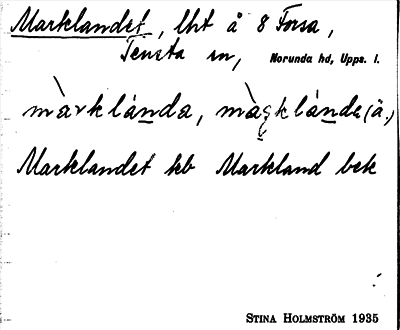 Marklandet, lht å 8 Forsa,
Tensta sn, Norunda hd, Upps. l.
màrklánda, màrklánda (ä.)
Marklandet kb Markland bek
STINA HOLMSTRÖM 1935